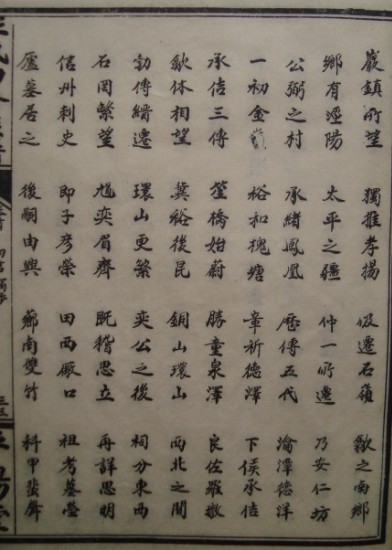 巖鎮所望 獨推孝揚 伋遷石嶺 歙之南鄉
鄉有涇陽 太平之疆 仲一所遷 乃安仁坊
公弼之村 承緒鳳凰 歷傳五代 瀹潭德洋
一初金 裕和槐塘 章祈德澤 下侯承佶
承佶三傳 篁橋始蔚 勝童泉澤 良佐羅墩
歙休相望 冀裕後昆 銅山環山 西北之間
勃傳縉遷 環山更繁 奕公之後 祠分東西
石岡繁望 尨奕眉齊 既稽思立 再詳思明
信州刺史 即子彥榮 田西厰口 祖考墓塋
廬墓居之 後嗣由興 鄉南雙竹 科甲蜚聲